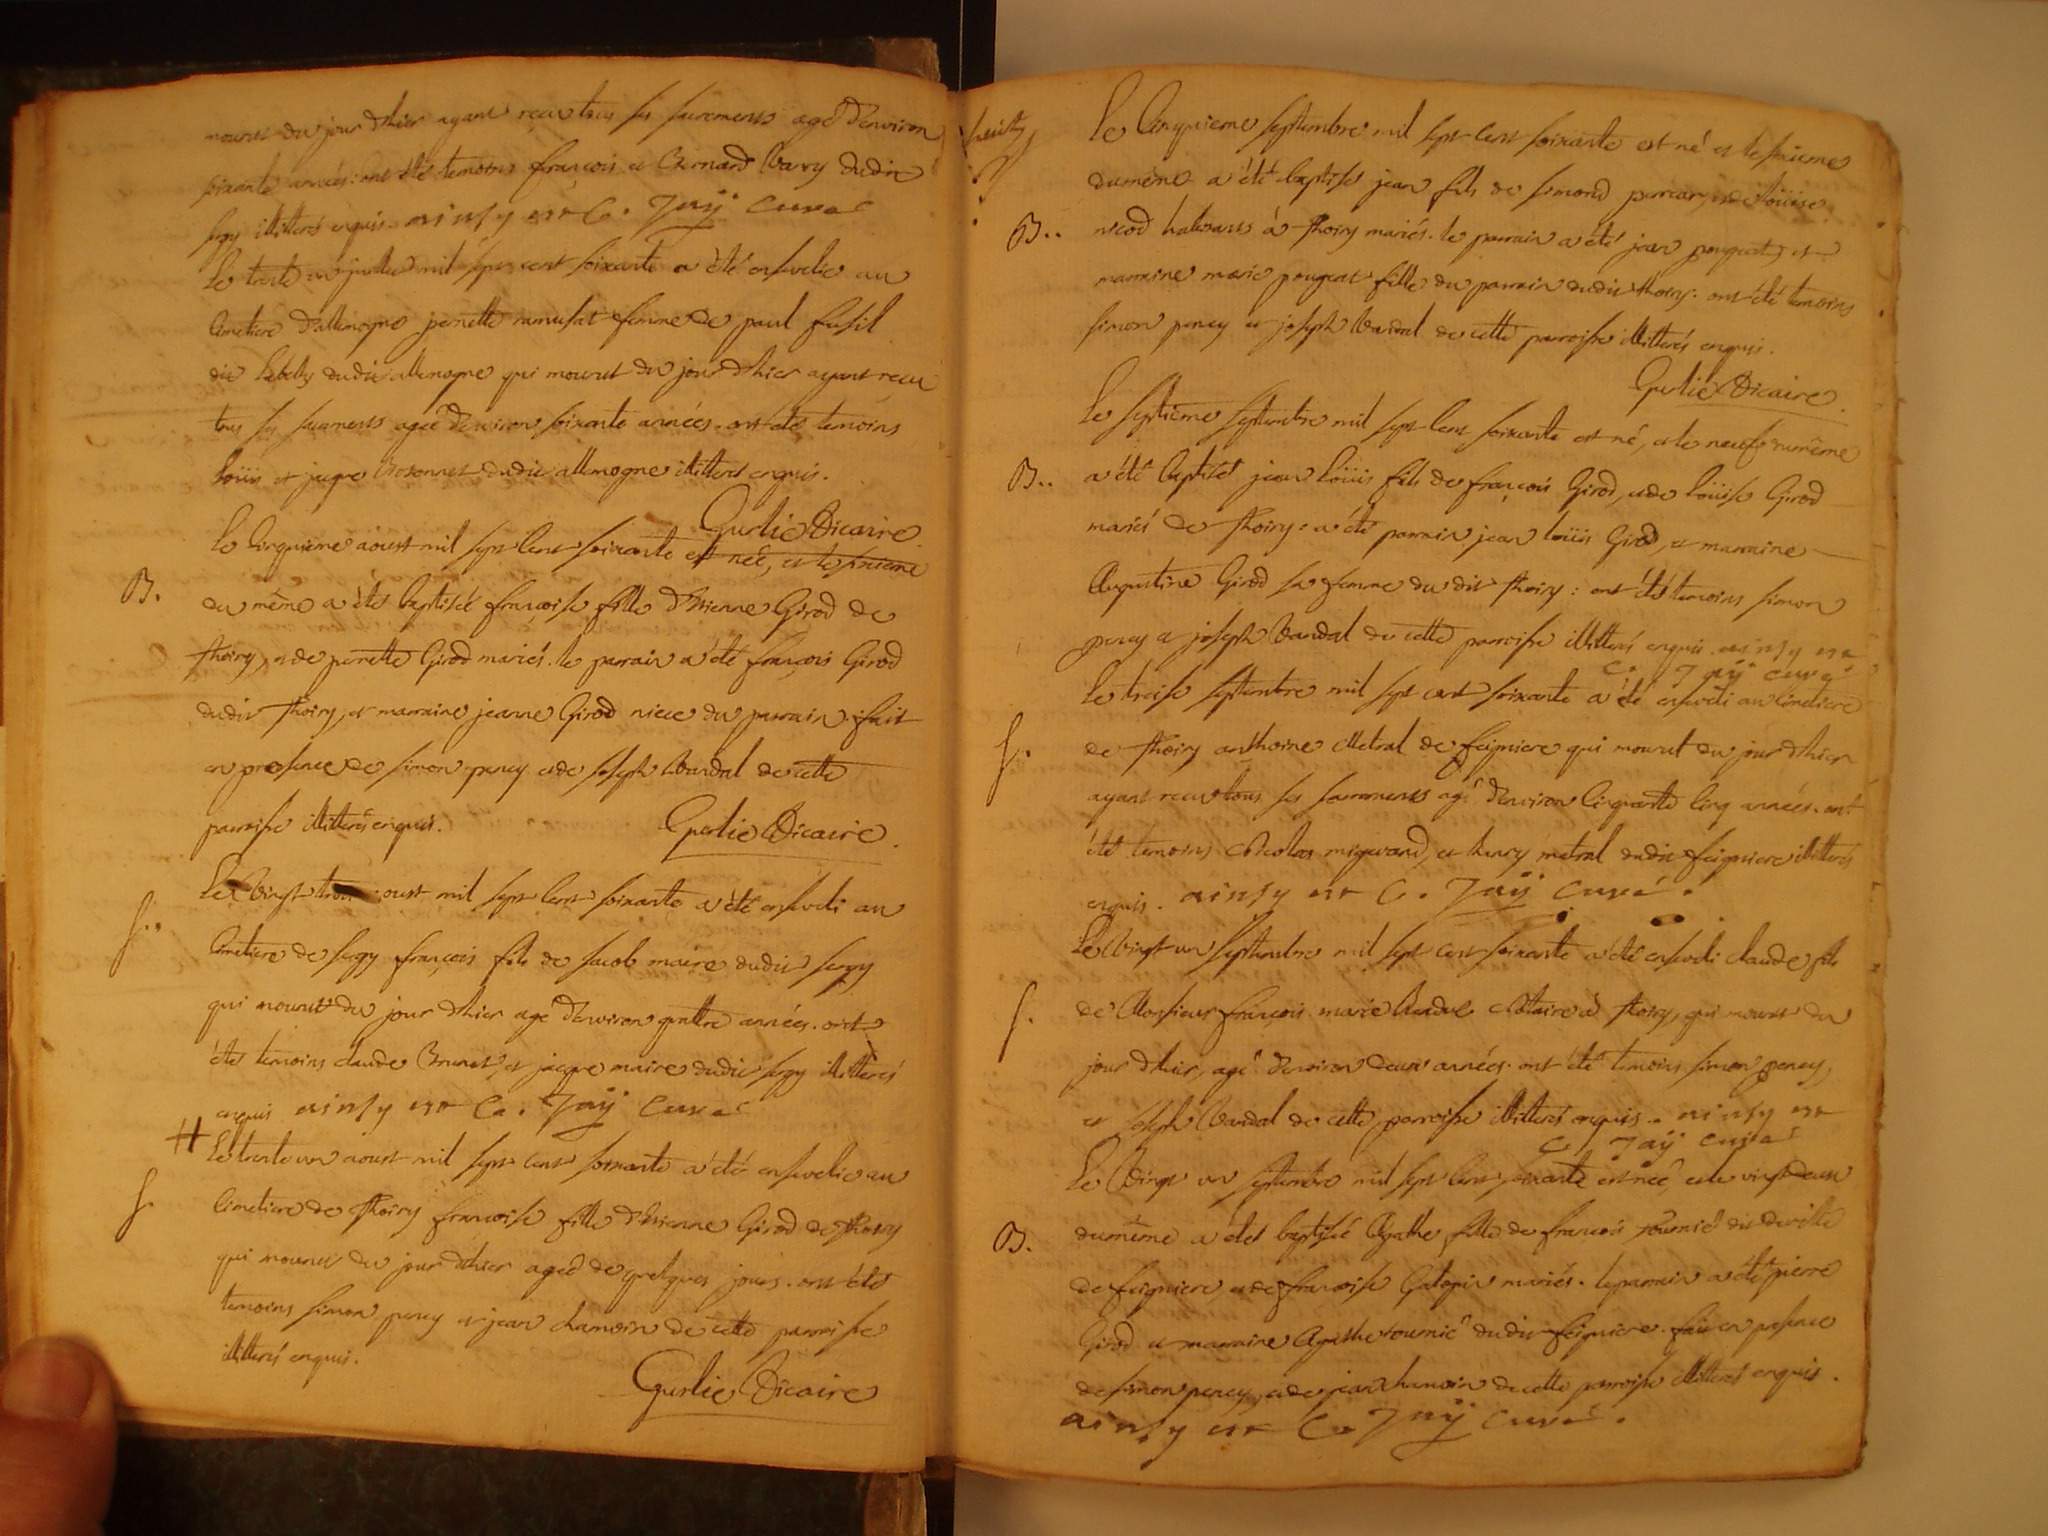 mourut du jour d'hier ayant recu tous ses sacremens agé d'environ
soixante années: ont été temoins françois et Bernard Vavry dudit
sergy illitterés enquis. ainsy est C. Jaÿ curé
Le trente un juillet mil sept cent soixante a été ensevelie au
Cimetiere d'allemogne pernette ramusat femme de paul fusil
dit dudit allemogne qui mourut du jour d'hier ayant recu
tous ses sacremens agée d'environ soixante années. ont été temoins
loüis et jaque dudit allemogne illitterés enquis.
Gurlie Vicaire
Le Cinquieme aoust mil sept Cent soixante est née, et le sixieme
B.
du même a été baptisée françoise fille d'Etienne Girod de
thoiry, et de pernette Girod mariés. le parrain a été françois Girod
dudit thoiry, et marraine jeanne Girod niece du parrain. fait
en presence de simon percy et de joseph Vandal de cette
parroisse illitterés enquis. Gurlie Vicaire.
Le Vingt trois aoust mil sept Cent soixante a été enseveli au
S..
Cimetiere de sergy françois fils de jacob maire dudit sergy
qui mourut du jour d'hier agé d'environ quattre années. ont
étés temoins claude Brunet, et jacque maire dudit sergy illitterés
enquis ainsy est C. Jaÿ curé
H Le trente un aoust mil sept cent soixante a été ensevelie au
S.
Cimetiere de thoiry françoise fille d'Etienne Girod de thoiry
qui mourut du jour d'hier agée de quelques jours. ont étés
temoins simon percy et jean chamoin de cette parroisse
illitterés enquis.
Gurlie Vicaire
Le Cinquieme septembre mil sept cent soixante est né et le sixieme
dumême a été baptisé jean fils de simond et de loüise
B.. nicod habitants à thoiry mariés. le parrain a été jean pouget, et
marraine marie pouget fille du parrain dudit thoiry. ont été temoins
simon percy et joseph Vandal de cette parroisse illitterés enquis.
Gurlie Vicaire.
Le septieme septembre mil sept Cent soixante est né, et le neufs dumême
B.. a été baptisé jean loüis fils de françois Girod, et de loüise Girod
mariés de thoiry: a été parrain jean loüis Girod, et marraine
Augustine Girod sa femme du dit thoiry: ont étés temoins simon
percy et joseph Vandal de cette parroisse illitterés enquis. ainsy est
C. Jaÿ curé
Le treise septembre mil sept cent soixante a été enseveli au Cimetiere
S. de thoiry anthoine Metral de feigniere qui mourut du jour d'hier
ayant recu tous ses sacrements agé d'environ Cinquante Cinq années. ont
étés temoins Nicolas migerand, et henry metral dudit feigniere illitterés
enquis. ainsy est C. Jaÿ Curé.
Le Vingt un septembre mil sept cent soixante a été enseveli claude fils
S. de Monsieur françois marie Notaire à thoiry, qui mourut du
jour d'hier, agé d'environ deux années. ont été temoins simon percy,
et joseph Vandal de cette parroisse illitterés enquis. ainsy est
C. Jaÿ curé
Le Vingt un septembre mil sept Cent soixante est née, et le vingt deux
B. dumême a étés baptisée Agathe fille de françois fournié dit deville
de feigniere et de françoise Galopin mariés. le parrain a été pierre
Girod et marraine Agathe tournié dudit feigniere. fait en presence
de simon percy, et de jean chamoin de cette parroisse illitterés enquis.
ainsy est C. Jaÿ curé.